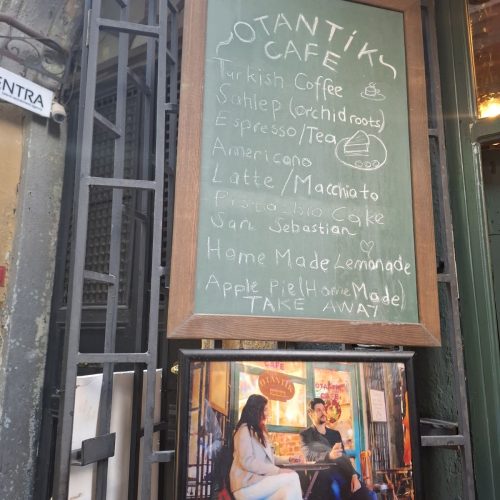 ENTRA
OTANTİK
CAFE
Turkish Coffee
Sahlep (orchid roots)
Espresso/Tea
Americano
Latte/Macchiato
Cake
San Sebastian
Home Made Lemonade
Apple Pie (Home Made)
TAKE AWAY
CAFE
OTANTİK
OTANTİK
CAFE